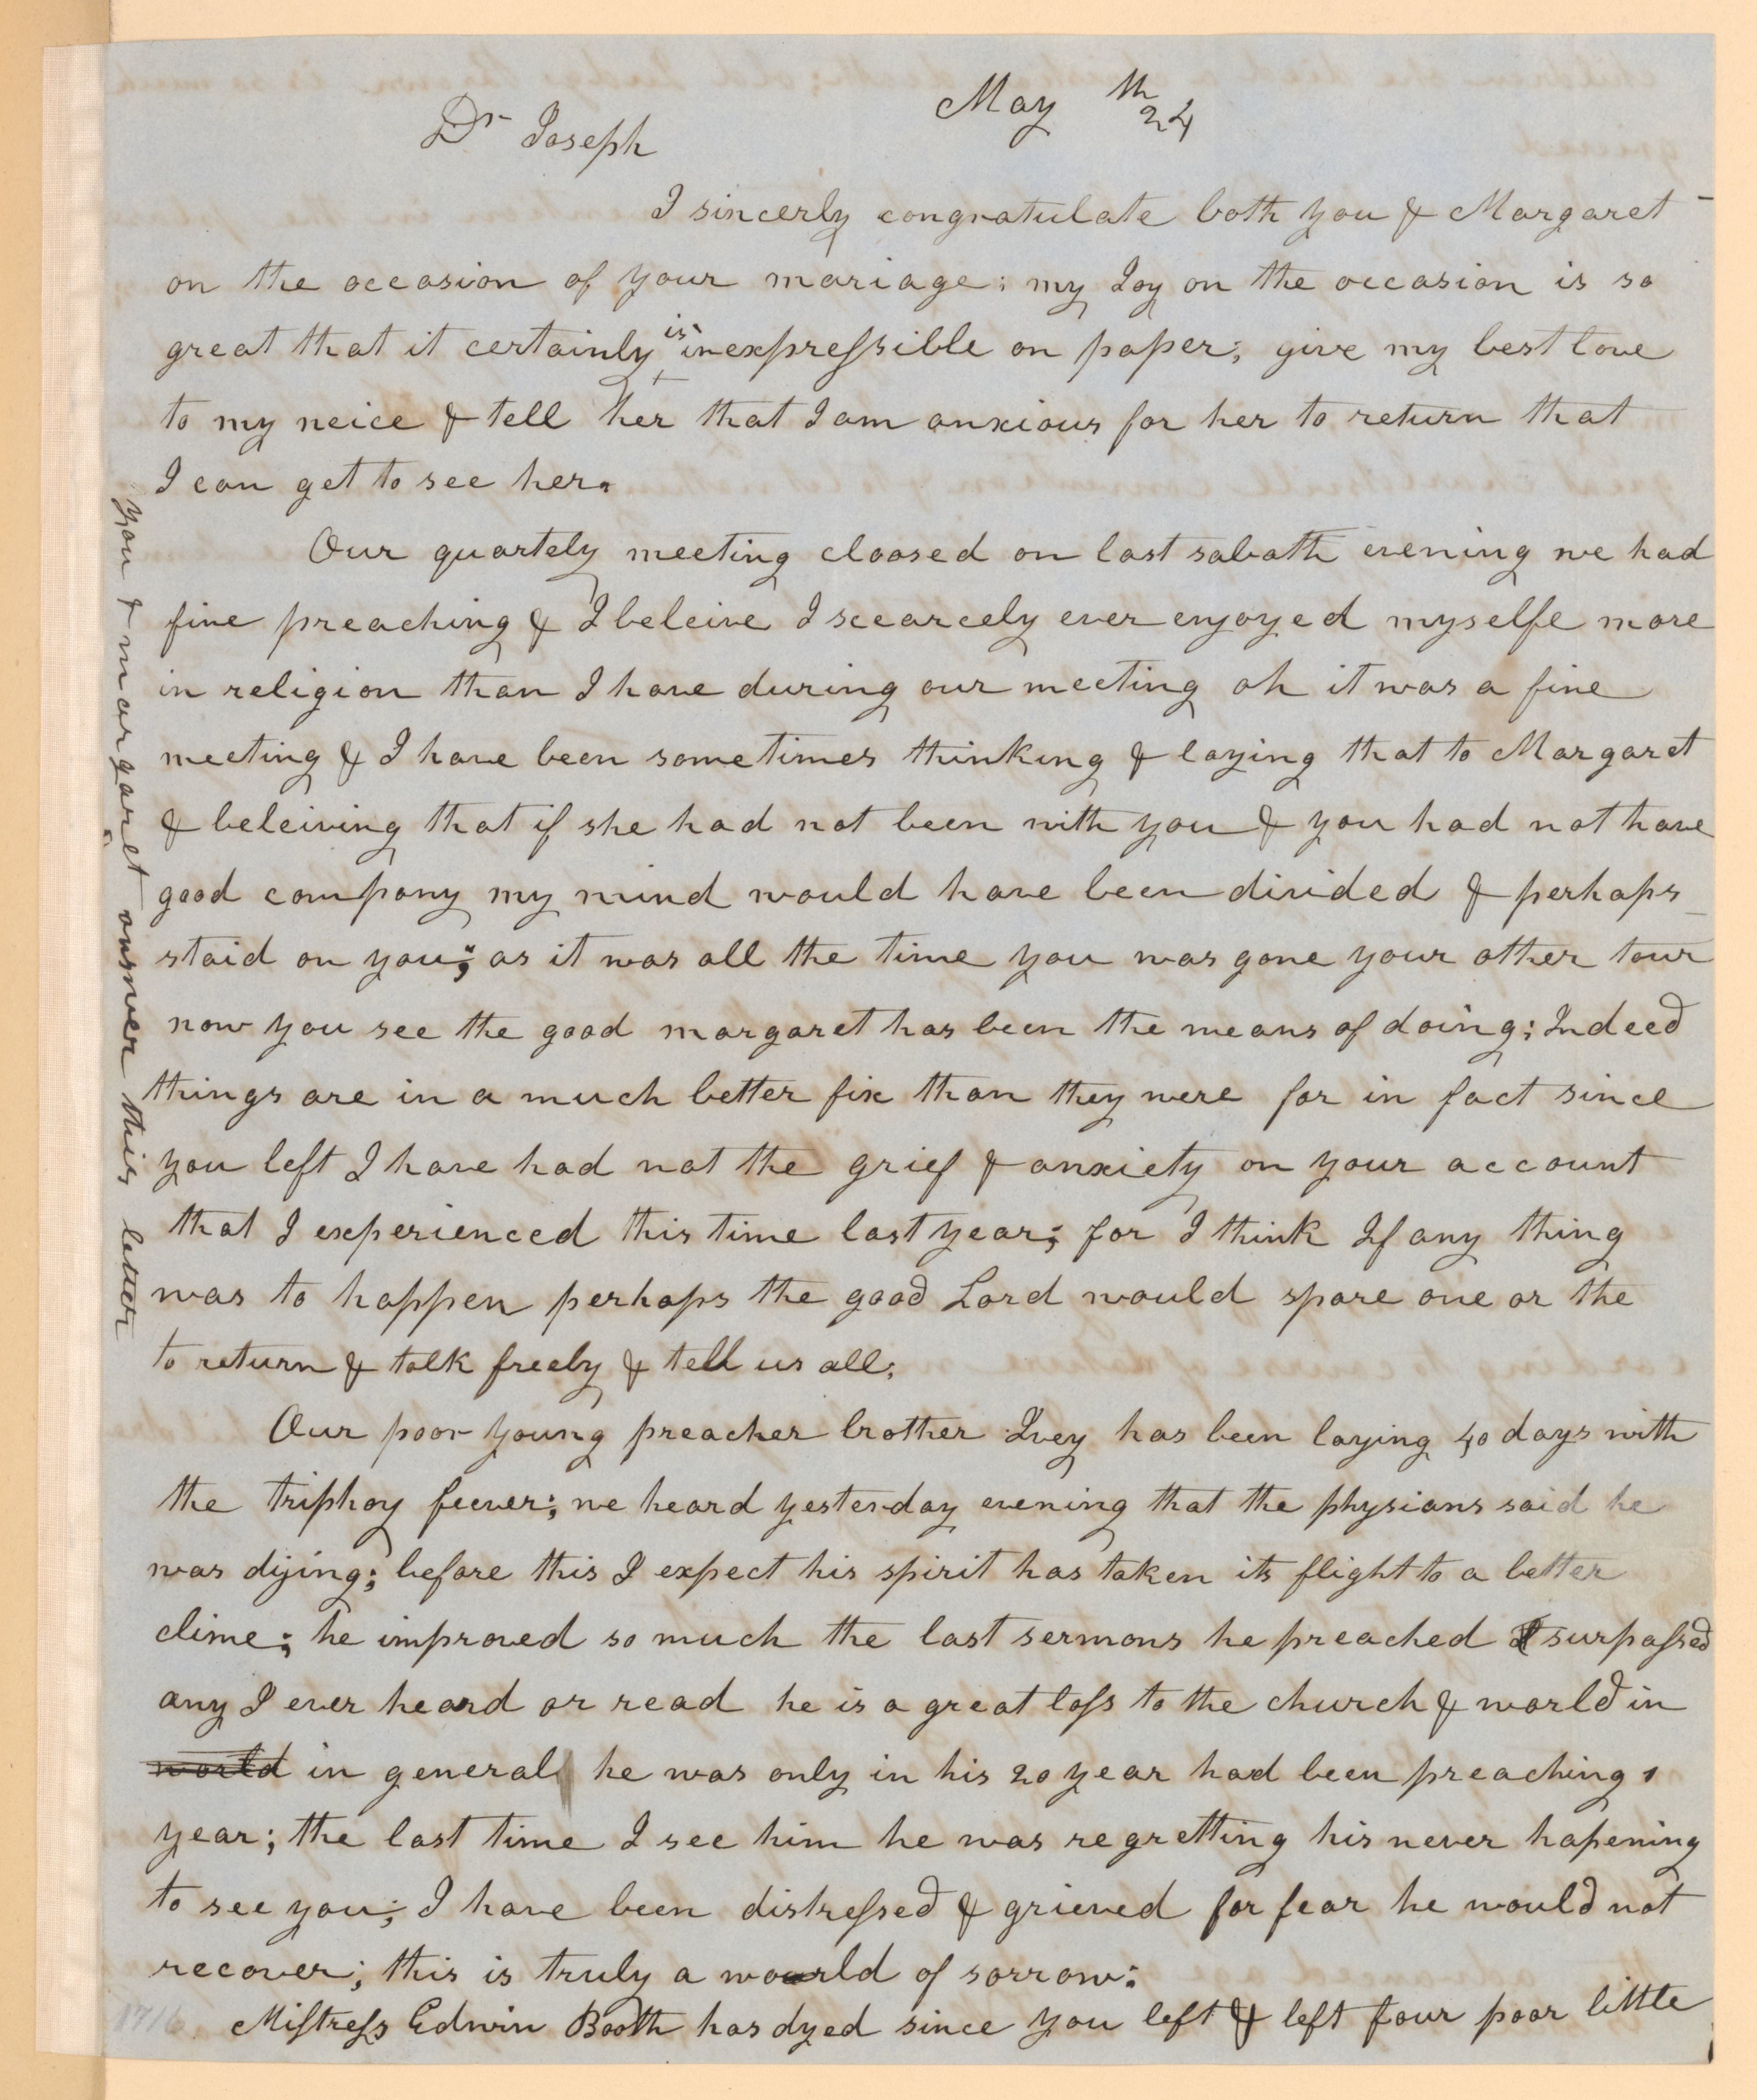 May 24th
Dr Joseph
I sincerly congratulate both you & Margaret
on the occasion of your mariage; my Joy on the occasion is so
great that it certainly is inexpressible on paper; give my best love
to my neice & tell her that I am anxious for her to return that
I can get to see her.
Our quartely meeting cloosed on last sabath evening we had
fine preaching & I beleive I scearcely ever enjoyed myselfe more
in religion than I have during our meeting oh it was a fine
meeting & I have been sometimes thinking & laying that to Margaret
& beleiving that if she had not been with you & you had not have
good company my mind would have been divided & perhaps
staid on you; as it was all the time you was gone your other tour
now you see the good margaret has been the means of doing; Indeed
things are in a much better fix than they were for in fact since
you left I have had not the grief & anxiety on your account
that I experienced this time last year; for I think If any thing
was to happen perhaps the good Lord would spare one or the
to return & talk freely & tell us all;
Our poor young preacher brother Ivey has been laying 40 days with
the triphoy feever; we heard yesterday evening that the physians said he
was dijing; before this I expect his spirit has taken its flight to a better
clime; he improved so much the last sermons he preached surpassed
any I ever heard or read he is a great loss to the church & world in
world in general he was only in his 20 year had been preaching 1
year; the last time I see him he was regretting his never hapening
to see you; I have been distressed & grieved for fear he would not
recover; this is truly a world of sorrow:
Mistress Edwin Booth has dyed since you left & left four poor little
you & margaret answer this letter